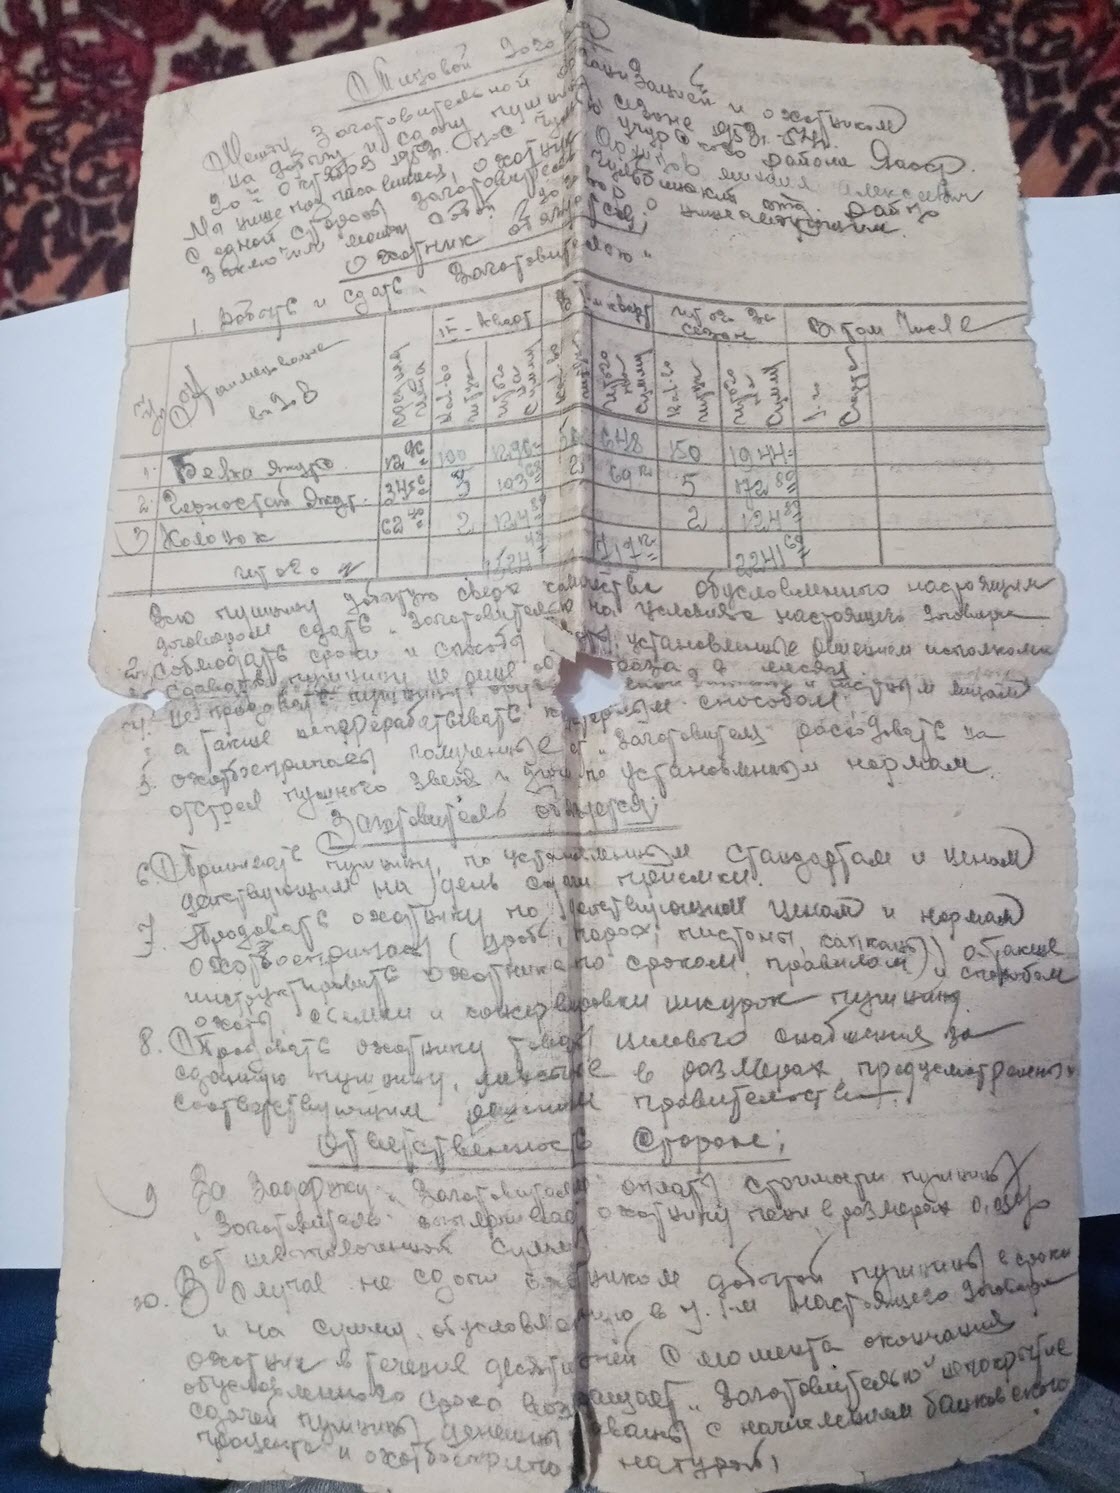 Типовой дого
Между Заготовительной организацией и охотником
на добычу и сдачу пушнины в сезоне 1953-54г.
20 октября 1953г. района
Мы ниже подписавшиеся, охотник Архипов Михаил Алексеевич
с одной стороны Заготовитель
Заключили между собой о нижеследующим.
Охотник обязуется;
1. Добыть и сдать „Заготовителю"
Наименование видов
IV - кварт
I - кварт
Итого за сезон
В том числе
Кол-во штук
Итого на сумму
Кол-во штук
Итого на сумму
Кол-во штук
Итого на сумму
1. Белка якут. 12 96 100 1296 50 648 150 1944
2. Горностай Якут. 34 56 3 103 68 2 69 12 5 172 80
3 Колонок 62 40 2 124 80 2 124 80
Итого 1524 48 717 12 2241 60
Всю пушнину добытую сверх количества обусловленного настоящим
договором сдать „Заготовителю" на условиях настоящего договора
2. Соблюдать сроки и способы установленные решением исполкома
3. Сдавать пушнину не реже раза в месяц.
4. Не продавать пушнину и частным лицам
а также не перерабатывать кустарным способом.
5. Охотбоеприпасы полученные от „Заготовителя" расходовать на
отстрел пушного зверя и по установленным нормам.
Заготовитель обязуется;
6. Принимать пушнину, по установленным стандартам и ценам
действующим на день сдачи приемки.
7. Продовать охотнику по действующим ценам и нормам
охотбоеприпасы (дробь, порох, пистоны, капканы) а также
инструктировать охотника по срокам, правилам и способам
охоты, съемки и консервировки шкурок пушнины.
8. Продовать охотнику товары целового снабжения за
сданную пушнину, в размерах предусмотренных
соответствующим решением правительства.
Ответственность Сторон;
9 За задержку „Заготовителем" оплаты стоимости пушнины
„Заготовитель" выплачивает охотнику пени в размерах 0,05%
от невыплоченной суммы
10. В случае не сдачи охотником добытой пушнины в сроки
и на сумму, обусловленную в настоящего договора
охотник в течение десяти дней с момента окончания
обусловленного срока возвращает „Заготовителю" непокрытые
сдачей пушнины денежны авансы с начислением банковского
процента и охотбоеприпасы натурой,